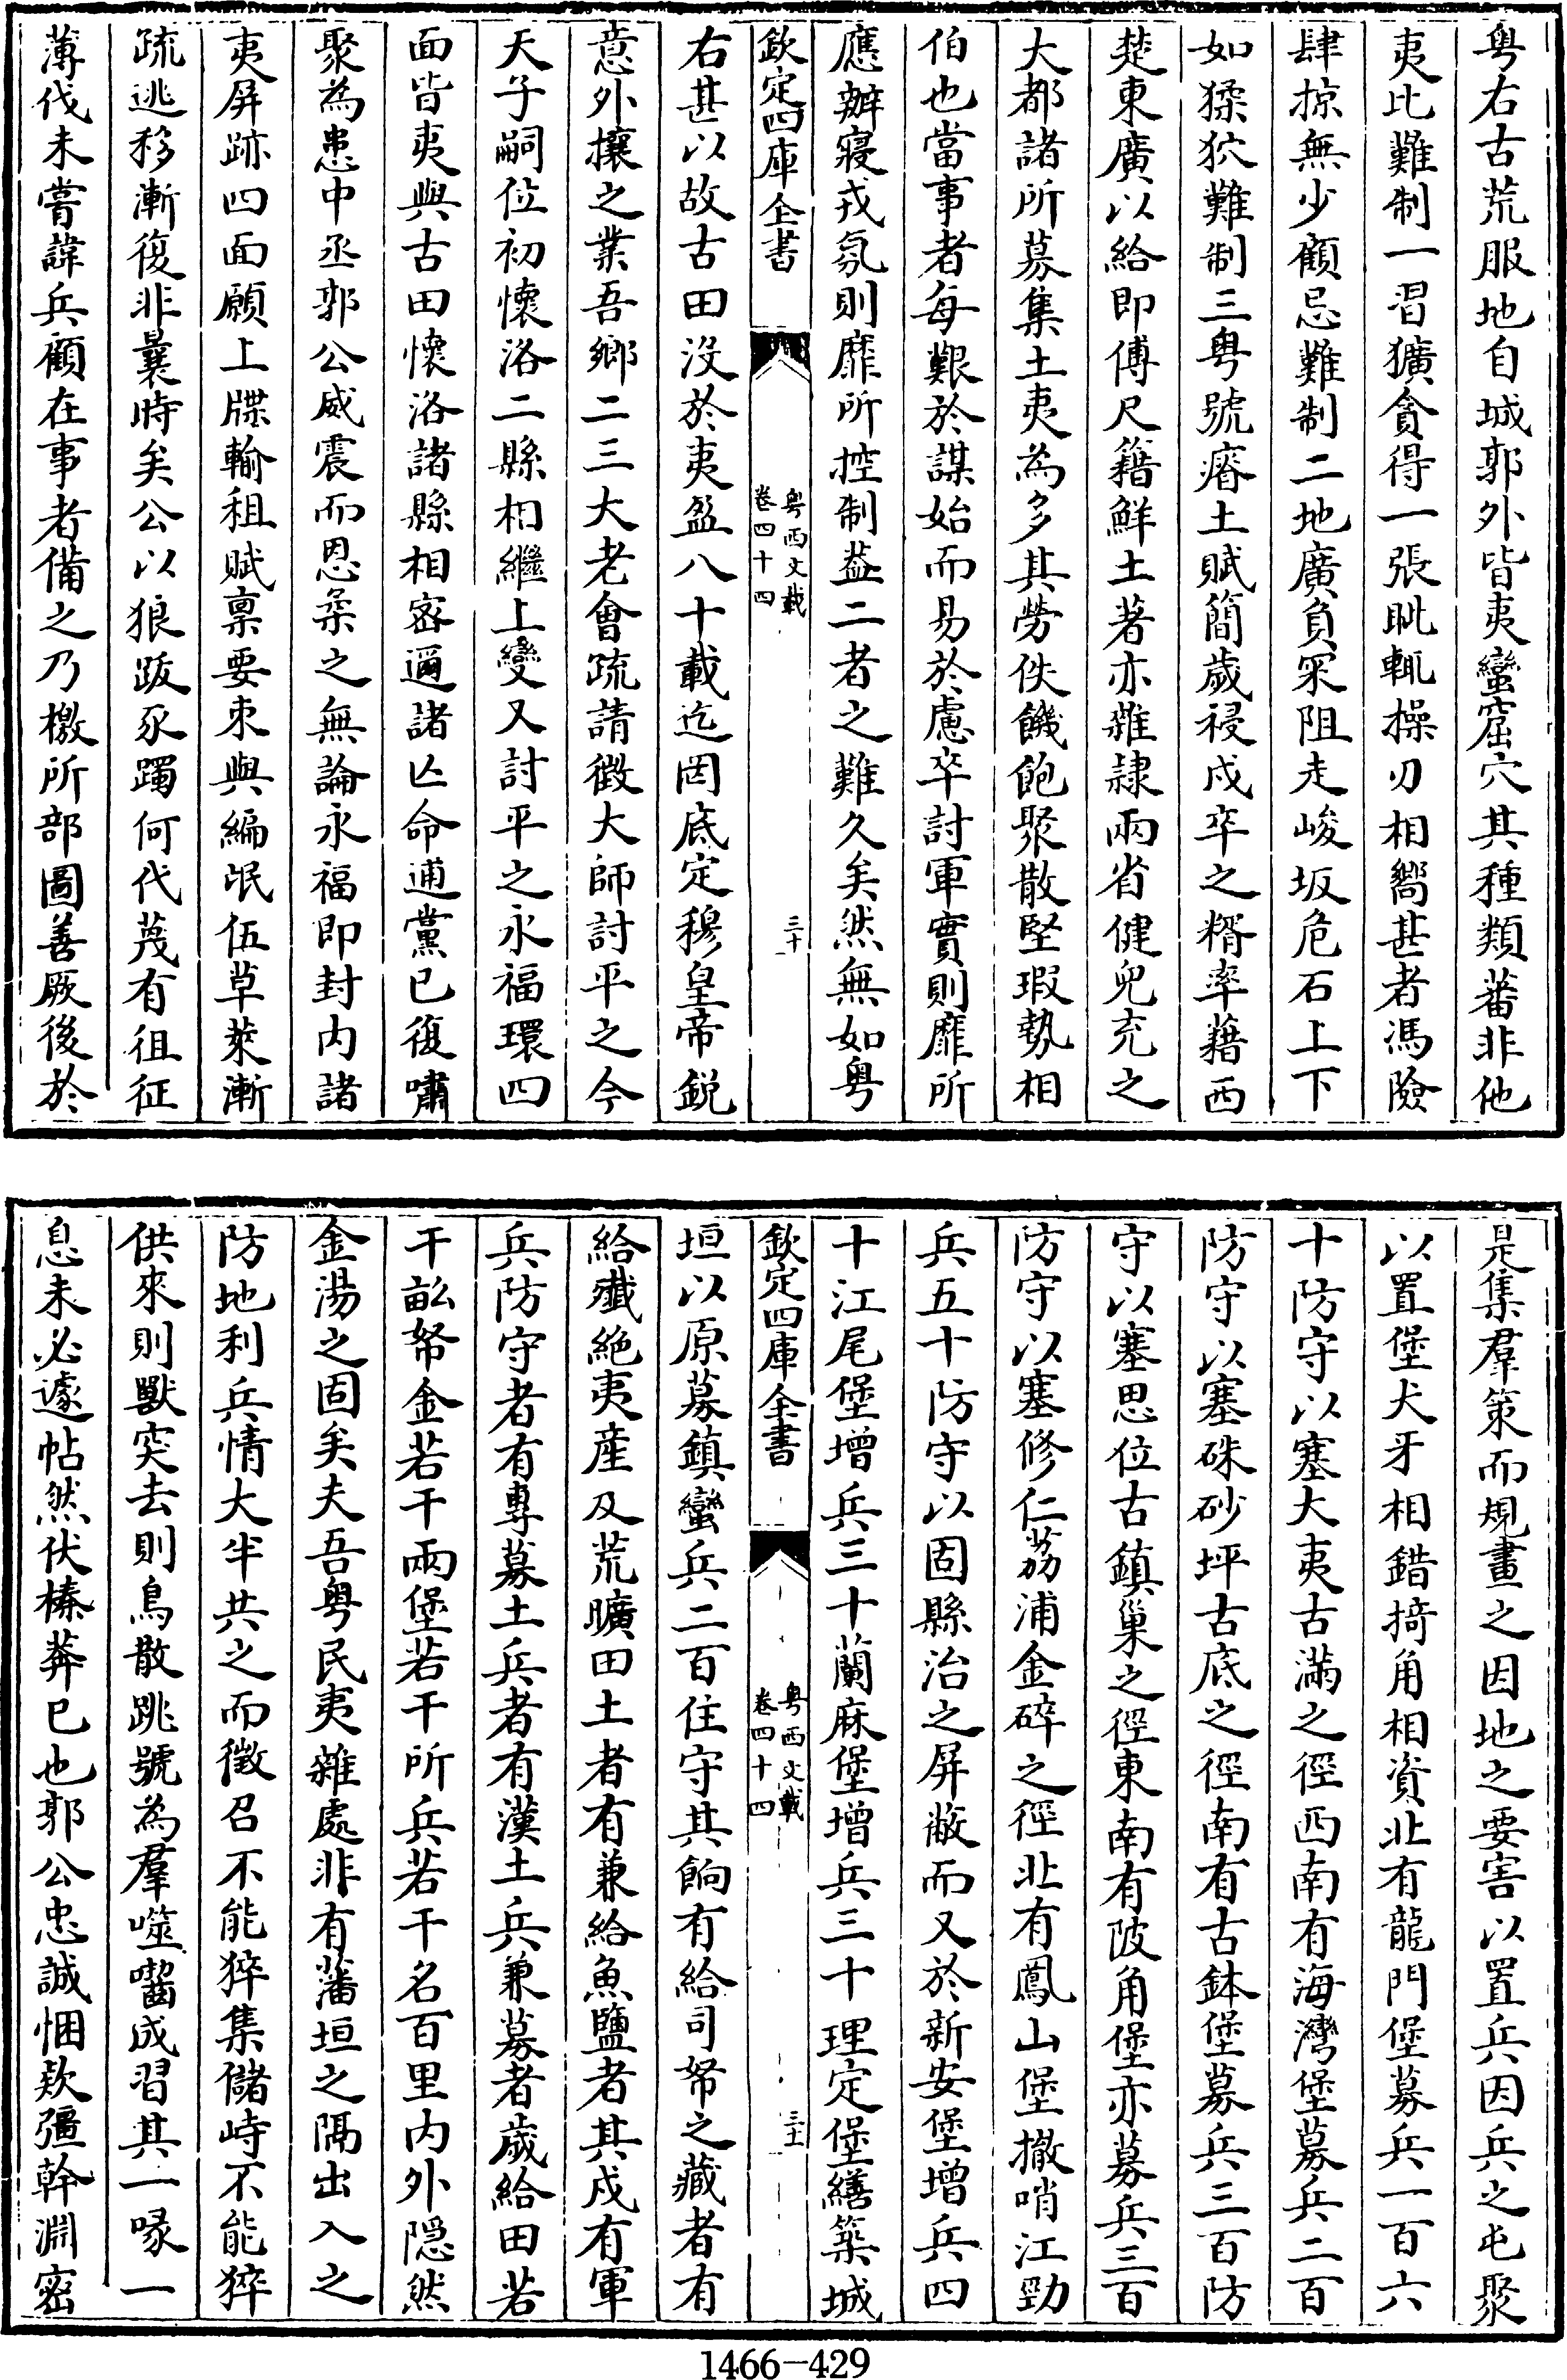 粤右古荒服地自城郭外皆夷蠻窟穴其種類蕃非他
夷比難制一習獷貪得一張眦輒操刃相嚮甚者馮險
肆掠無少顧忌難制二地廣負罙阻走峻坂危石上下
如猱狖難制三粤號瘠土賦簡歲祲戍卒之糈率藉西
楚東廣以給即傅尺籍鮮土著亦雜隷兩省健兒充之
大都諸所募集土夷為多其勞佚饑飽聚散堅瑕勢相
伯也當事者每艱於謀始而易於慮卒討軍實則靡所
應辦寢戎氛則靡所控制葢二者之難久矣然無如粤
欽定四庫全書
粤西文載
卷四十四
三十
右甚以故古田沒於夷盈八十載迄罔底定穆皇帝銳
意外攘之業吾鄉二三大老會疏請徵大師討平之今
天子嗣位初懷洛二縣相繼上變又討平之永福環四
面皆夷與古田懷洛諸縣相密邇諸亾命逋黨已復嘯
聚為患中丞郭公威震而恩柔之無論永福即封内諸
夷屏跡四面願上牒輸租賦禀要朿與編氓伍草萊漸
疏逃移漸復非曩時矣公以狼跋豕躅何代蔑有徂征
薄伐未嘗諱兵顧在事者備之乃檄所部圖善厥後於
是集羣策而規畫之因地之要害以置兵因兵之屯聚
以置堡犬牙相錯掎角相資北有龍門堡募兵一百六
十防守以塞大夷古滿之徑西南有海灣堡募兵二百
防守以塞硃砂坪古底之徑南有古鉢堡募兵三百防
守以塞思位古鎮巢之徑東南有陂角堡亦募兵三百
防守以塞修仁荔浦金碎之徑北有鳳山堡撤哨江勁
兵五十防守以固縣治之屏蔽而又於新安堡增兵四
十江尾堡增兵三十蘭麻堡增兵三十理定堡繕築城
欽定四庫全書
粤西文載
卷四十四
三十一
垣以原募鎮蠻兵二百住守其餉有給司帑之藏者有
給殱絶夷産及荒曠田土者有兼給魚鹽者其戍有軍
兵防守者有專募土兵者有漢土兵兼募者歲給田若
干畝帑金若干兩堡若干所兵若干名百里内外隱然
金湯之固矣夫吾粤民夷雜處非有藩垣之隔出入之
防地利兵情大半共之而徵召不能猝集儲峙不能猝
供來則獸突去則鳥散跳號為羣噬囓成習其一喙一
息未必遽帖然伏榛莽已也郭公忠誠悃欵彊幹淵密
1466-429